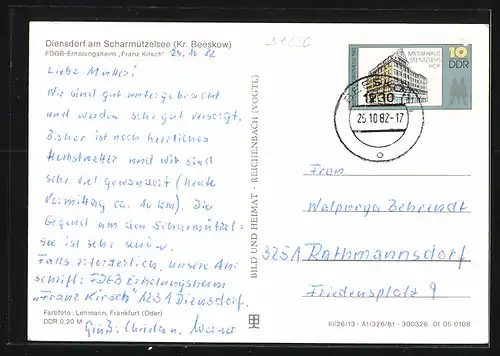 Diensdorf am Scharmützelsee (Kr. Beeskow)
FDGB-Erholungsheim „Franz Kirsch"
24.10.82
Liebe Mutter!
Wir sind gut untergebracht
und werden sehr gut versorgt.
Bisher ist noch herrliches
Herbstwetter und wir sind
sehr viel gewandert (heute
Vormittag ca. 10 km). Die
Gegend um den Scharmützel-
see ist sehr schön.
Falls erforderlich, unsere An-
schrift: FDGB Erholungsheim
„Franz Kirsch" 1231 Diensdorf.
Gruß Christian, Werner
Farbfoto: Lehmann, Frankfurt (Oder)
DDR 0,20 M
BILD UND HEIMAT · REICHENBACH (VOGTL)
MESSEHAUS
STENTZLERS
HOF
10
DDR
BEESKOW
1230
25.10.82-17
Frau
Walporga Behrendt
3251 Rathmannsdorf
Friedensplatz 9
III/26/13 · A1/326/81 · 300326 01 05 0108